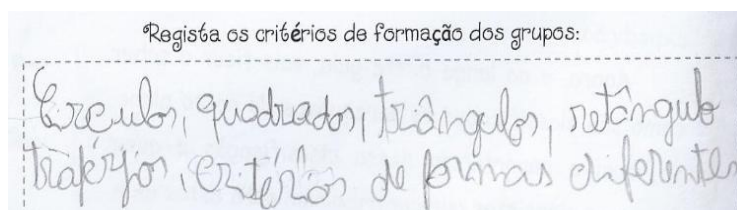 Regista os critérios de formação dos grupos:
Círculos, quadrados, triângulos, retângulo
trapézios, critérios de formas diferentes